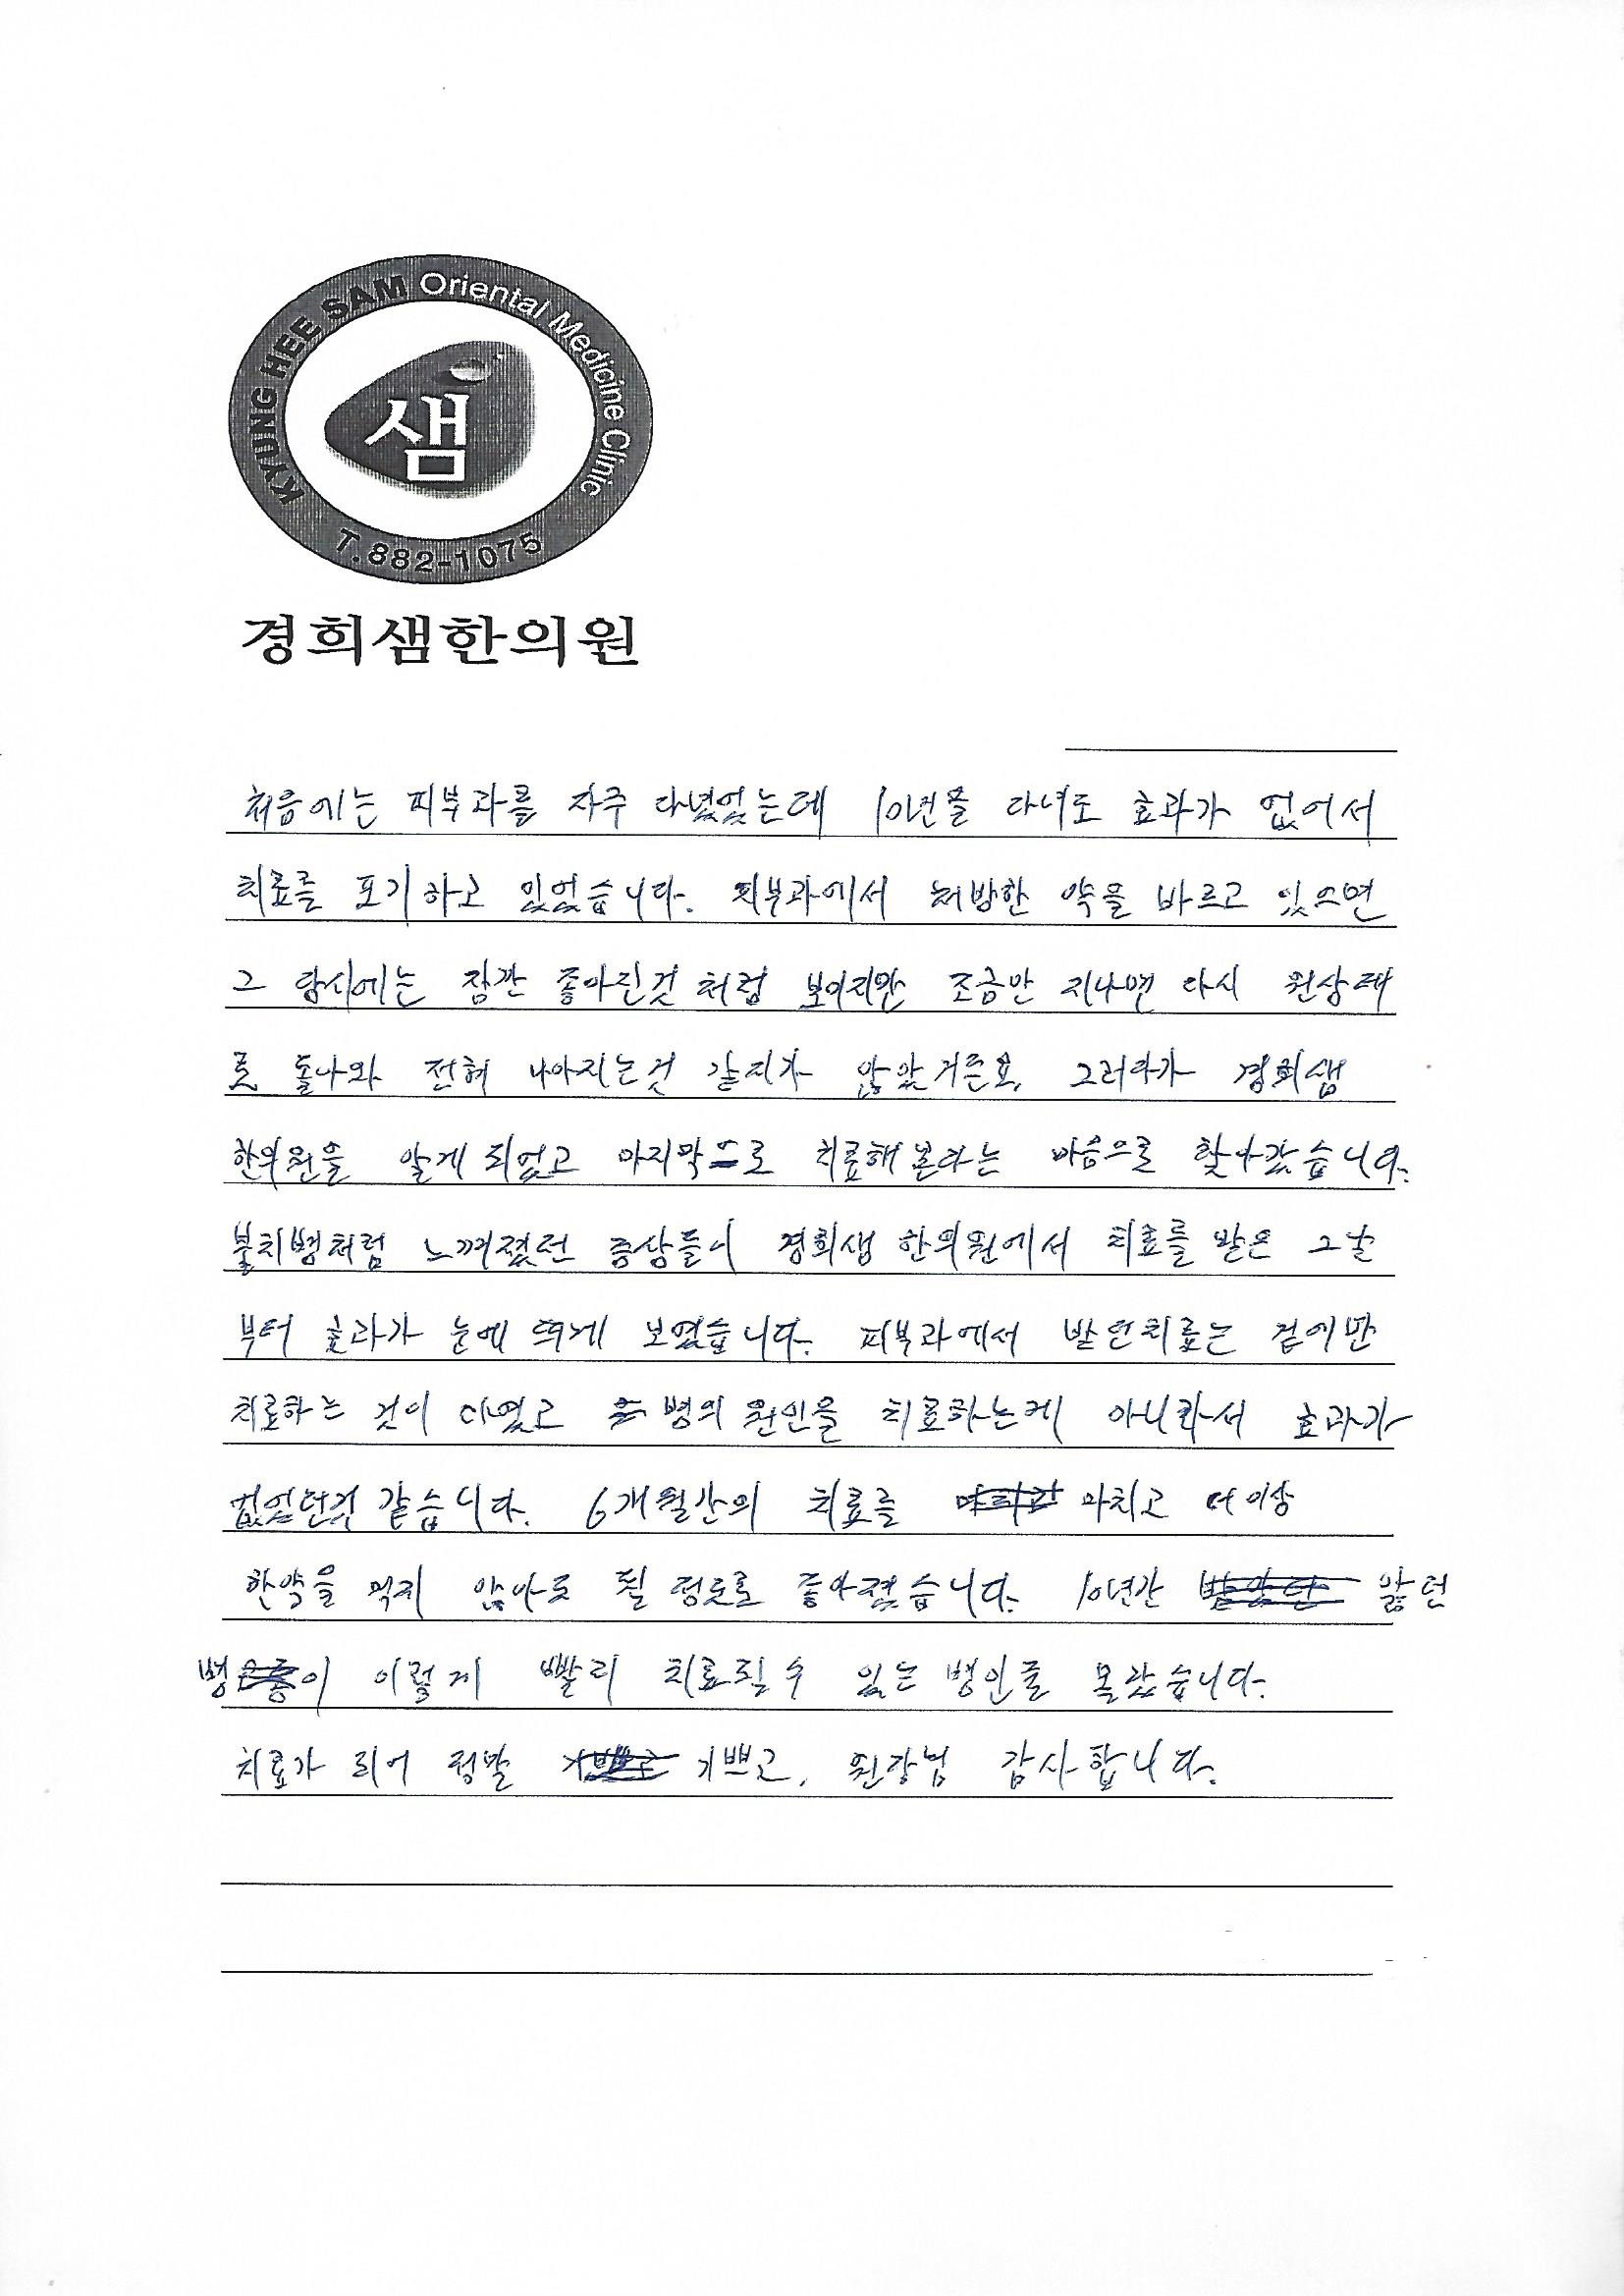 KYUNG HEE SAM Oriental Medicine Clinic
샘
T.882-1075
경희샘한의원
처음에는 피부과를 자주 다녔었는데 10년을 다녀도 효과가 없어서
치료를 포기하고 있었습니다. 피부과에서 처방한 약을 바르고 있으면
그 당시에는 잠깐 좋아진것 처럼 보이지만 조금만 지나면 다시 원상태
로 돌아와 전혀 나아지는것 같지가 않았거든요, 그러다가 경희샘
한의원을 알게 되었고 마지막으로 치료해본다는 마음으로 찾아갔습니다.
불치병처럼 느껴졌던 증상들이 경희샘 한의원에서 치료를 받은 그날
부터 효과가 눈에 띄게 보였습니다. 피부과에서 받던치료는 겉에만
치료하는 것이 다였고 병의 원인을 치료하는게 아니라서 효과가
없었던것 같습니다. 6개월간의 치료를 마치고 더이상
한약을 먹지 않아도 될 정도로 좋아졌습니다. 10년간 앓던
병이 이렇게 빨리 치료될 수 있는 병인줄 몰랐습니다.
치료가 되어 정말 기쁘고, 원장님 감사합니다.